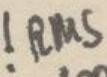 ! RMS